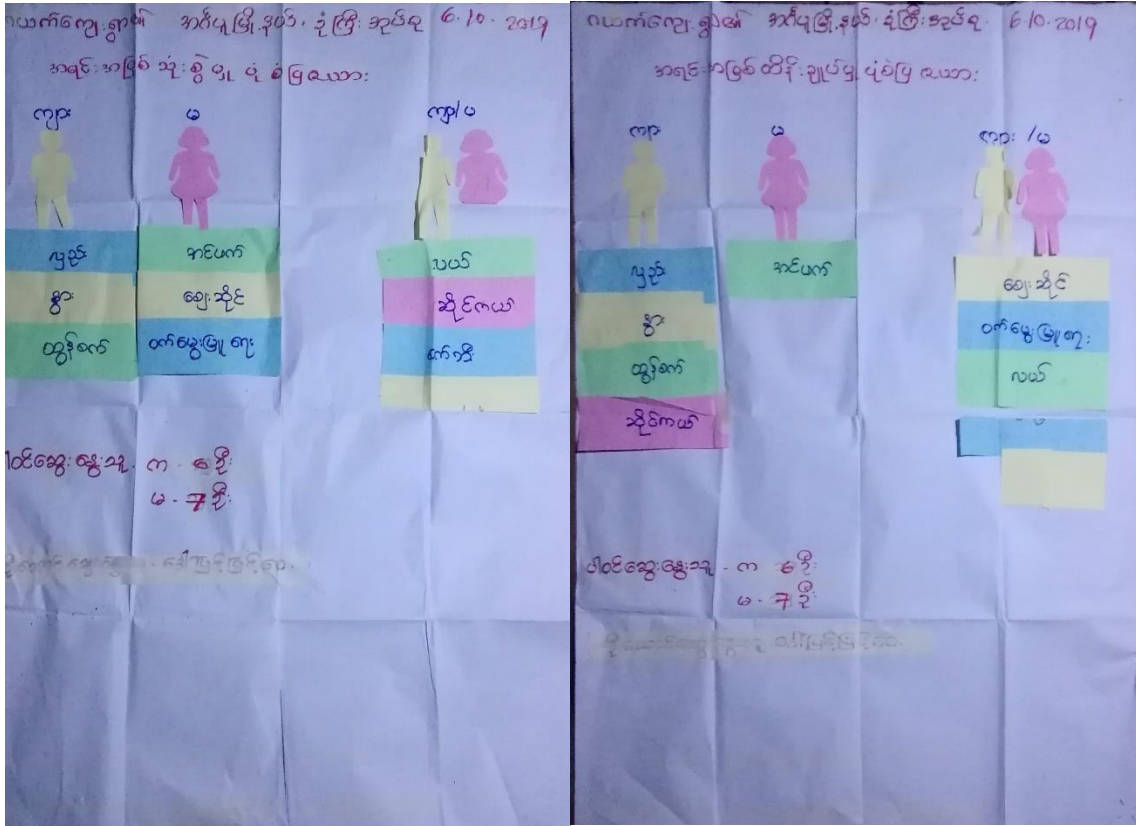 ဂယက်ကျေးရွာ၏ အင်္ဂပူမြို့နယ်၊ ဒုံကြီးအုပ်စု 6.10.2019
အရင်းအမြစ်သုံးစွဲမှု ပုံစံပြဇယား
ကျား
မ
ကျား/မ
လှည်း
နွား
ထွန်စက်
အင်ပက်
ဈေးဆိုင်
ဝက်မွေးမြူရေး
လယ်
ဆိုင်ကယ်
စက်ဘီး
ပါဝင်ဆွေးနွေးသူ - က - 6 ဦး
မ - 7 ဦး
ဂယက်ကျေးရွာ၏ အင်္ဂပူမြို့နယ်၊ ဒုံကြီးအုပ်စု 6.10.2019
အရင်းအမြစ်ထိန်းချုပ်မှု ပုံစံပြဇယား
ကျား
မ
ကျား/မ
လှည်း
နွား
ထွန်စက်
ဆိုင်ကယ်
အင်ပက်
ဈေးဆိုင်
ဝက်မွေးမြူရေး
လယ်
ပါဝင်ဆွေးနွေးသူ - က 6 ဦး
မ - 7 ဦး